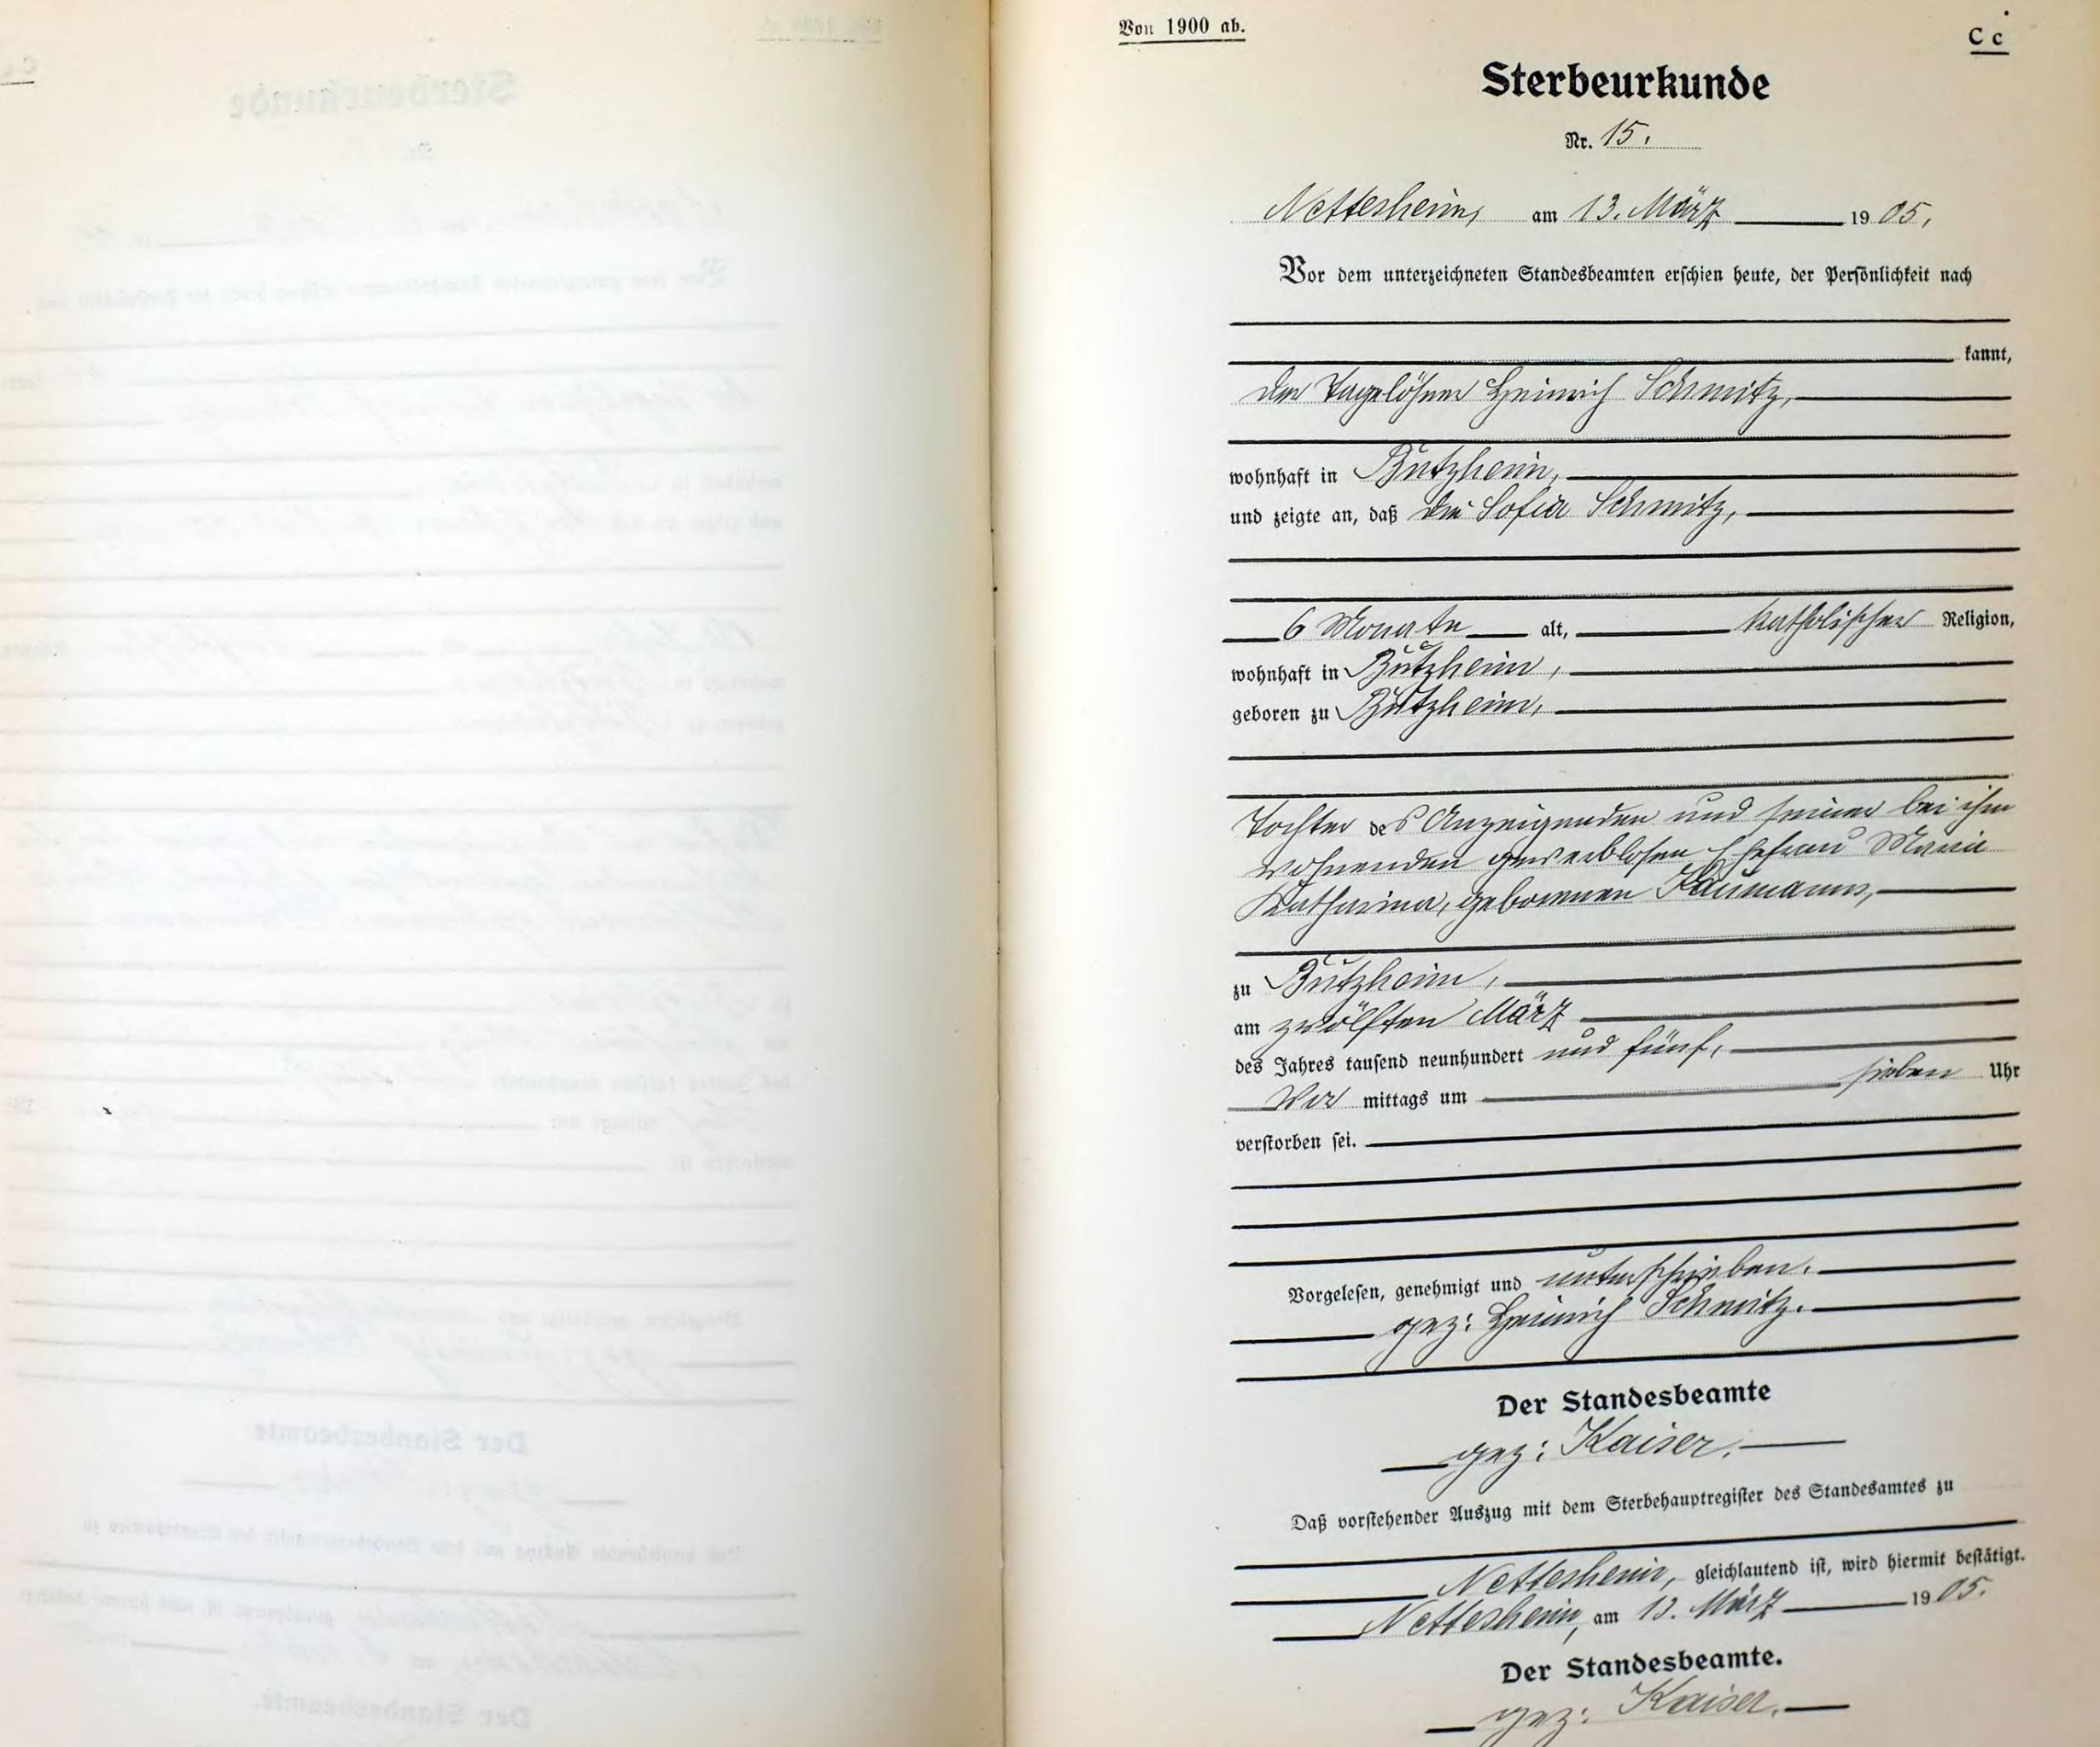 Von 1900 ab.
C c
Sterbeurkunde
Nr. 15.
Nettesheim, am 13. März 1905.
Vor dem unterzeichneten Standesbeamten erschien heute, der Persönlichkeit nach
kannt,
der Tagelöhner Heinrich Schmitz,
wohnhaft in Butzheim,
und zeigte an, daß die Sofia Schmitz,
6 Monate alt, katholischer Religion,
wohnhaft in Butzheim,
geboren zu Butzheim,
Tochter des Anzeigenden und seiner bei ihm
wohnenden gewerblosen Ehefrau Maria
Katharina, geborenen
zu Butzheim,
am zwölften März
des Jahres tausend neunhundert und fünf,
Vor mittags um sieben Uhr
verstorben sei.
Vorgelesen, genehmigt und unterschrieben.
gez: Heinrich Schmitz.
Der Standesbeamte
gez: Kaiser.
Daß vorstehender Auszug mit dem Sterbehauptregister des Standesamtes zu
Nettesheim, gleichlautend ist, wird hiermit bestätigt.
Nettesheim, am 13. März 1905.
Der Standesbeamte.
gez: Kaiser.